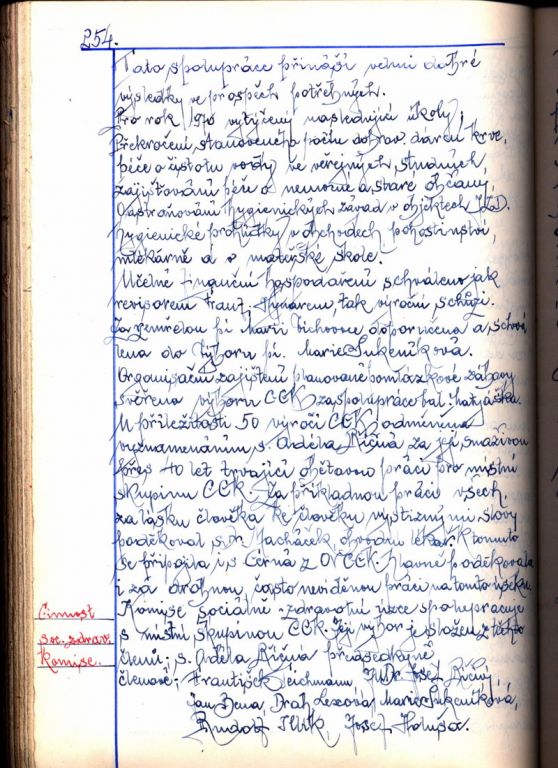 254.
Tato spolupráce přináší velmi dobré
výsledky ve prospěch potřebných.
Pro rok 1970 vytýčeny následující úkoly;
Překročení stanoveného počtu dobrov. dárců krve,
péče o čistotu vody ve veřejných studních,
zajišťování péče o nemocné a staré občany,
Odstraňování hygienických závad v objektech JZD.
hygienické prohlídky v obchodech, pohostinství,
mlékárně a v mateřské škole.
Účelné finanční hospodaření schváleno jak
revisorem Frant. tak výroční schůzí.
Za zemřelou pí Marii doporučena a schvá
lena do výboru pí. Marie Sukeníková.
Organisační zajištění plánované pomlázkové zábavy
svěřeno výboru ČČK za spolupráce
U příležitosti 50 výročí ČČK odměněna
vyznamenáním s. Adéla Říšná za její snaživou
přes 40 let trvající obětavou práci pro místní
skupinu ČČK. Za příkladnou práci všech
za lásku člověka ke člověku výstižnými slovy
poděkoval s. Dr. Jacháček, obvodní lékař. K tomuto
se připojila i s Černá z OVČČK. Hlavně poděkovala
i za drobnou, často neviděnou práci na tomto úseku.
Činnost
soc. zdrav.
Komise.
Komise sociálně-zdravotní úzce spolupracuje
s místní skupinou ČČK. Její výbor je složen z těchto
členů; s. Adéla Říšná předsedkyně
členové; František Teichmann, Josef
Jan Bena, Marie Sukeníková,
Rudolf Josef